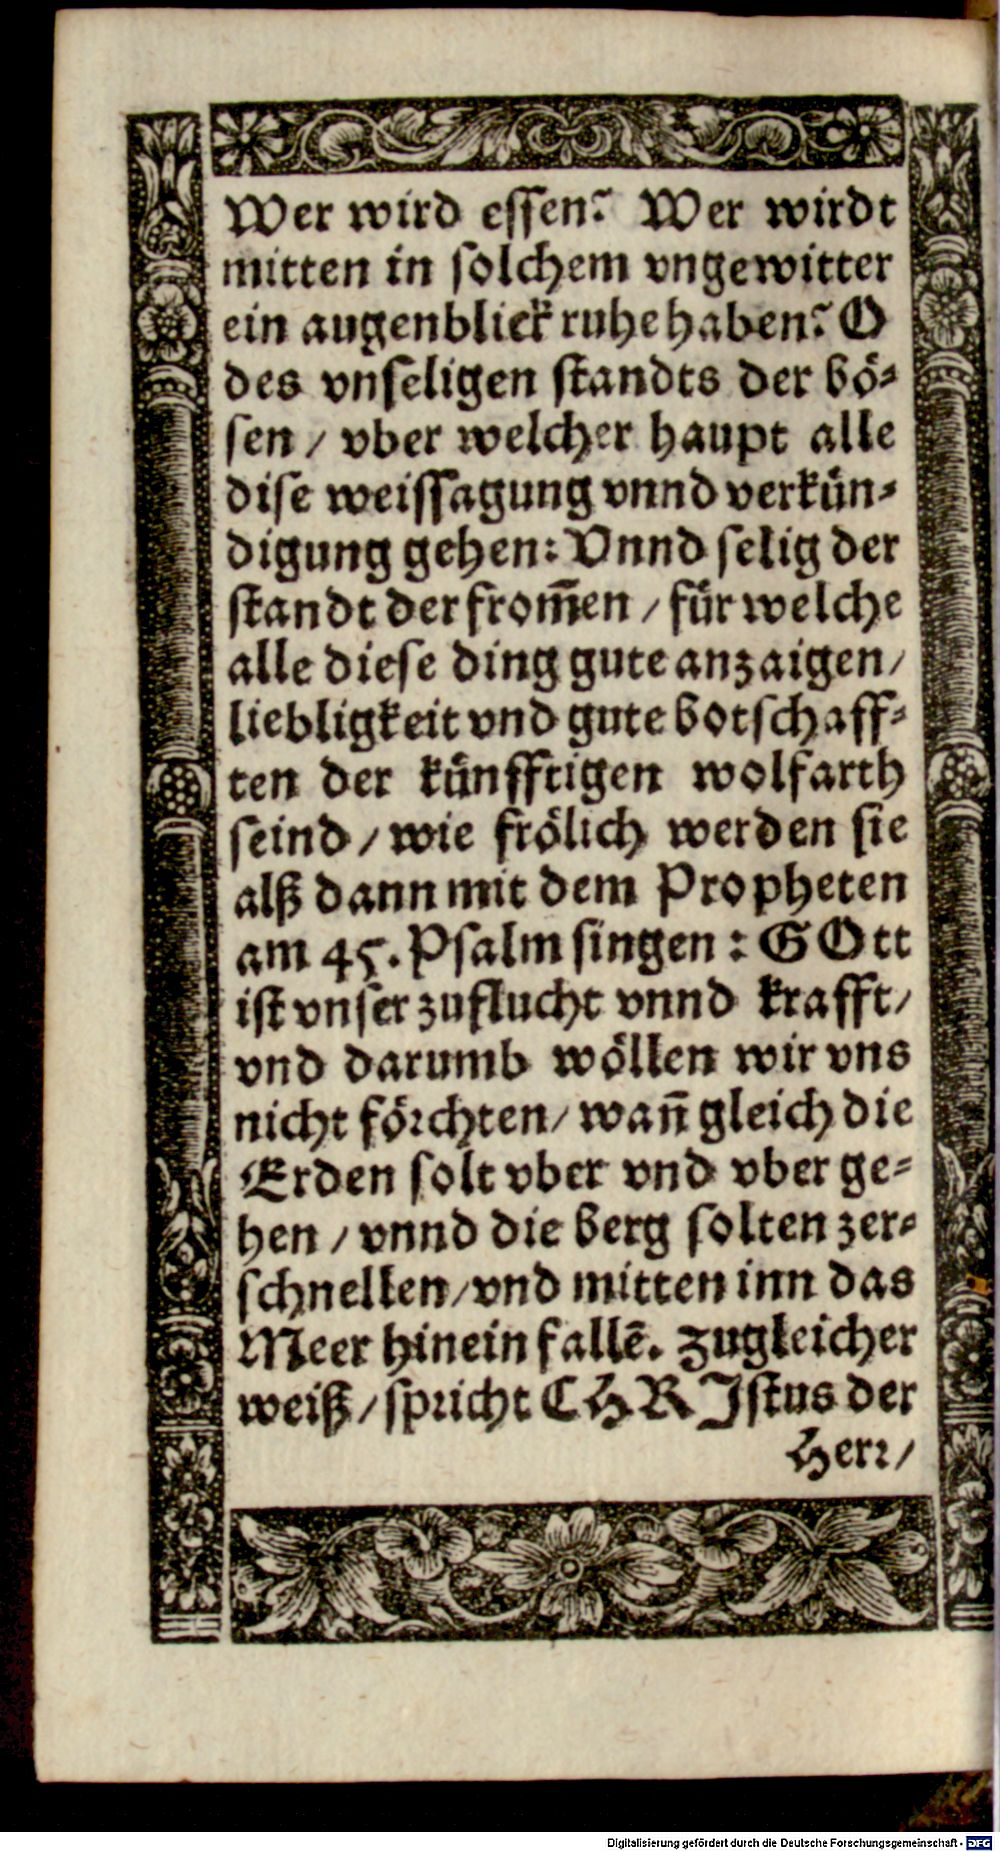 Wer wird essen? Wer wirdt
mitten in solchem vngewitter
ein augenblick ruhe haben? O
des vnseligen standts der bö-
sen / vber welcher haupt alle
dise weissagung vnnd verkün-
digung gehen: Vnnd selig der
standt der from̃en / für welche
alle diese ding gute anzaigen /
liebligkeit vnd gute botschaff-
ten der künfftigen wolfarth
seind / wie frölich werden sie
alß dann mit dem Propheten
am 45. Psalm singen: GOtt
ist vnser zuflucht vnnd krafft /
vnd darumb wöllen wir vns
nicht förchten / wañ gleich die
Erden solt vber vnd vber ge-
hen / vnnd die berg solten zer-
schnellen / vnd mitten inn das
Meer hinein fallẽ. Zugleicher
weiß / spricht CHRIstus der
Herr /
Digitalisierung gefördert durch die Deutsche Forschungsgemeinschaft - DFG